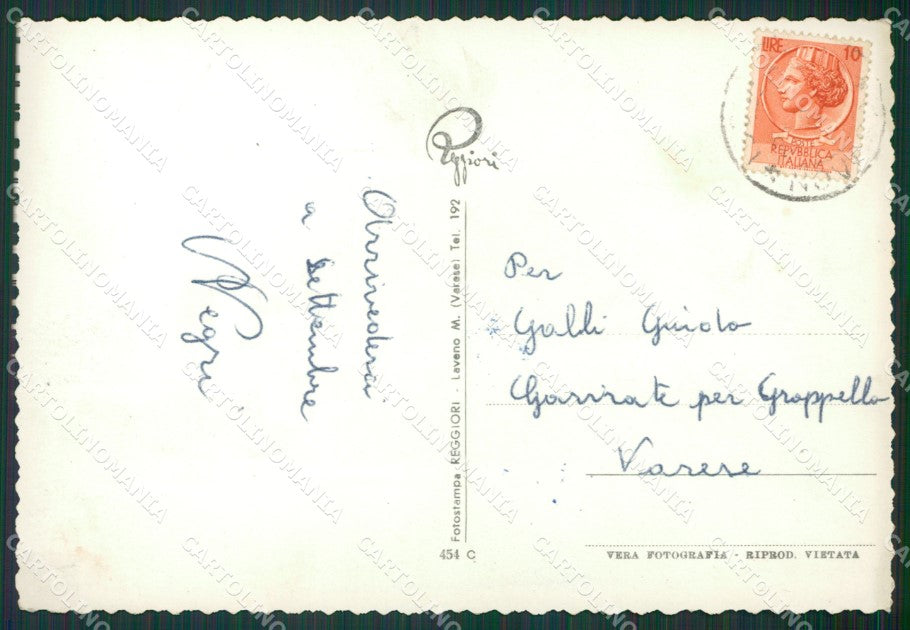 Reggiori
Arrivederci
a settembre
Negri
Fotostampa REGGIORI - Laveno M. (Varese) Tel. 192
454 C
LIRE 10
POSTE
REPVBBLICA
ITALIANA
Per
Galli Guido
Gavirate per Groppello
Varese
VERA FOTOGRAFIA - RIPROD. VIETATA
CARTOLINOMANIA